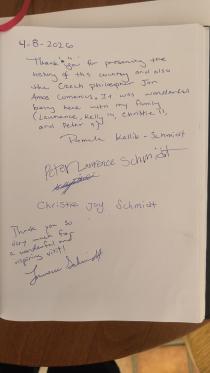 4-8-2026
Thank you for preserving the
history of this country and also
the Czech philosopher Jan
Amos Comenius. It was wonderful
being here with my family
(Lawrence, Kelly, Christie,
and Peter)
Pamela Kellib-Schmidt
Peter Lawrence Schmidt
Christie Joy Schmidt
Thank you so
very much for
a wonderful and
inspiring visit!
Lawrence Schmidt